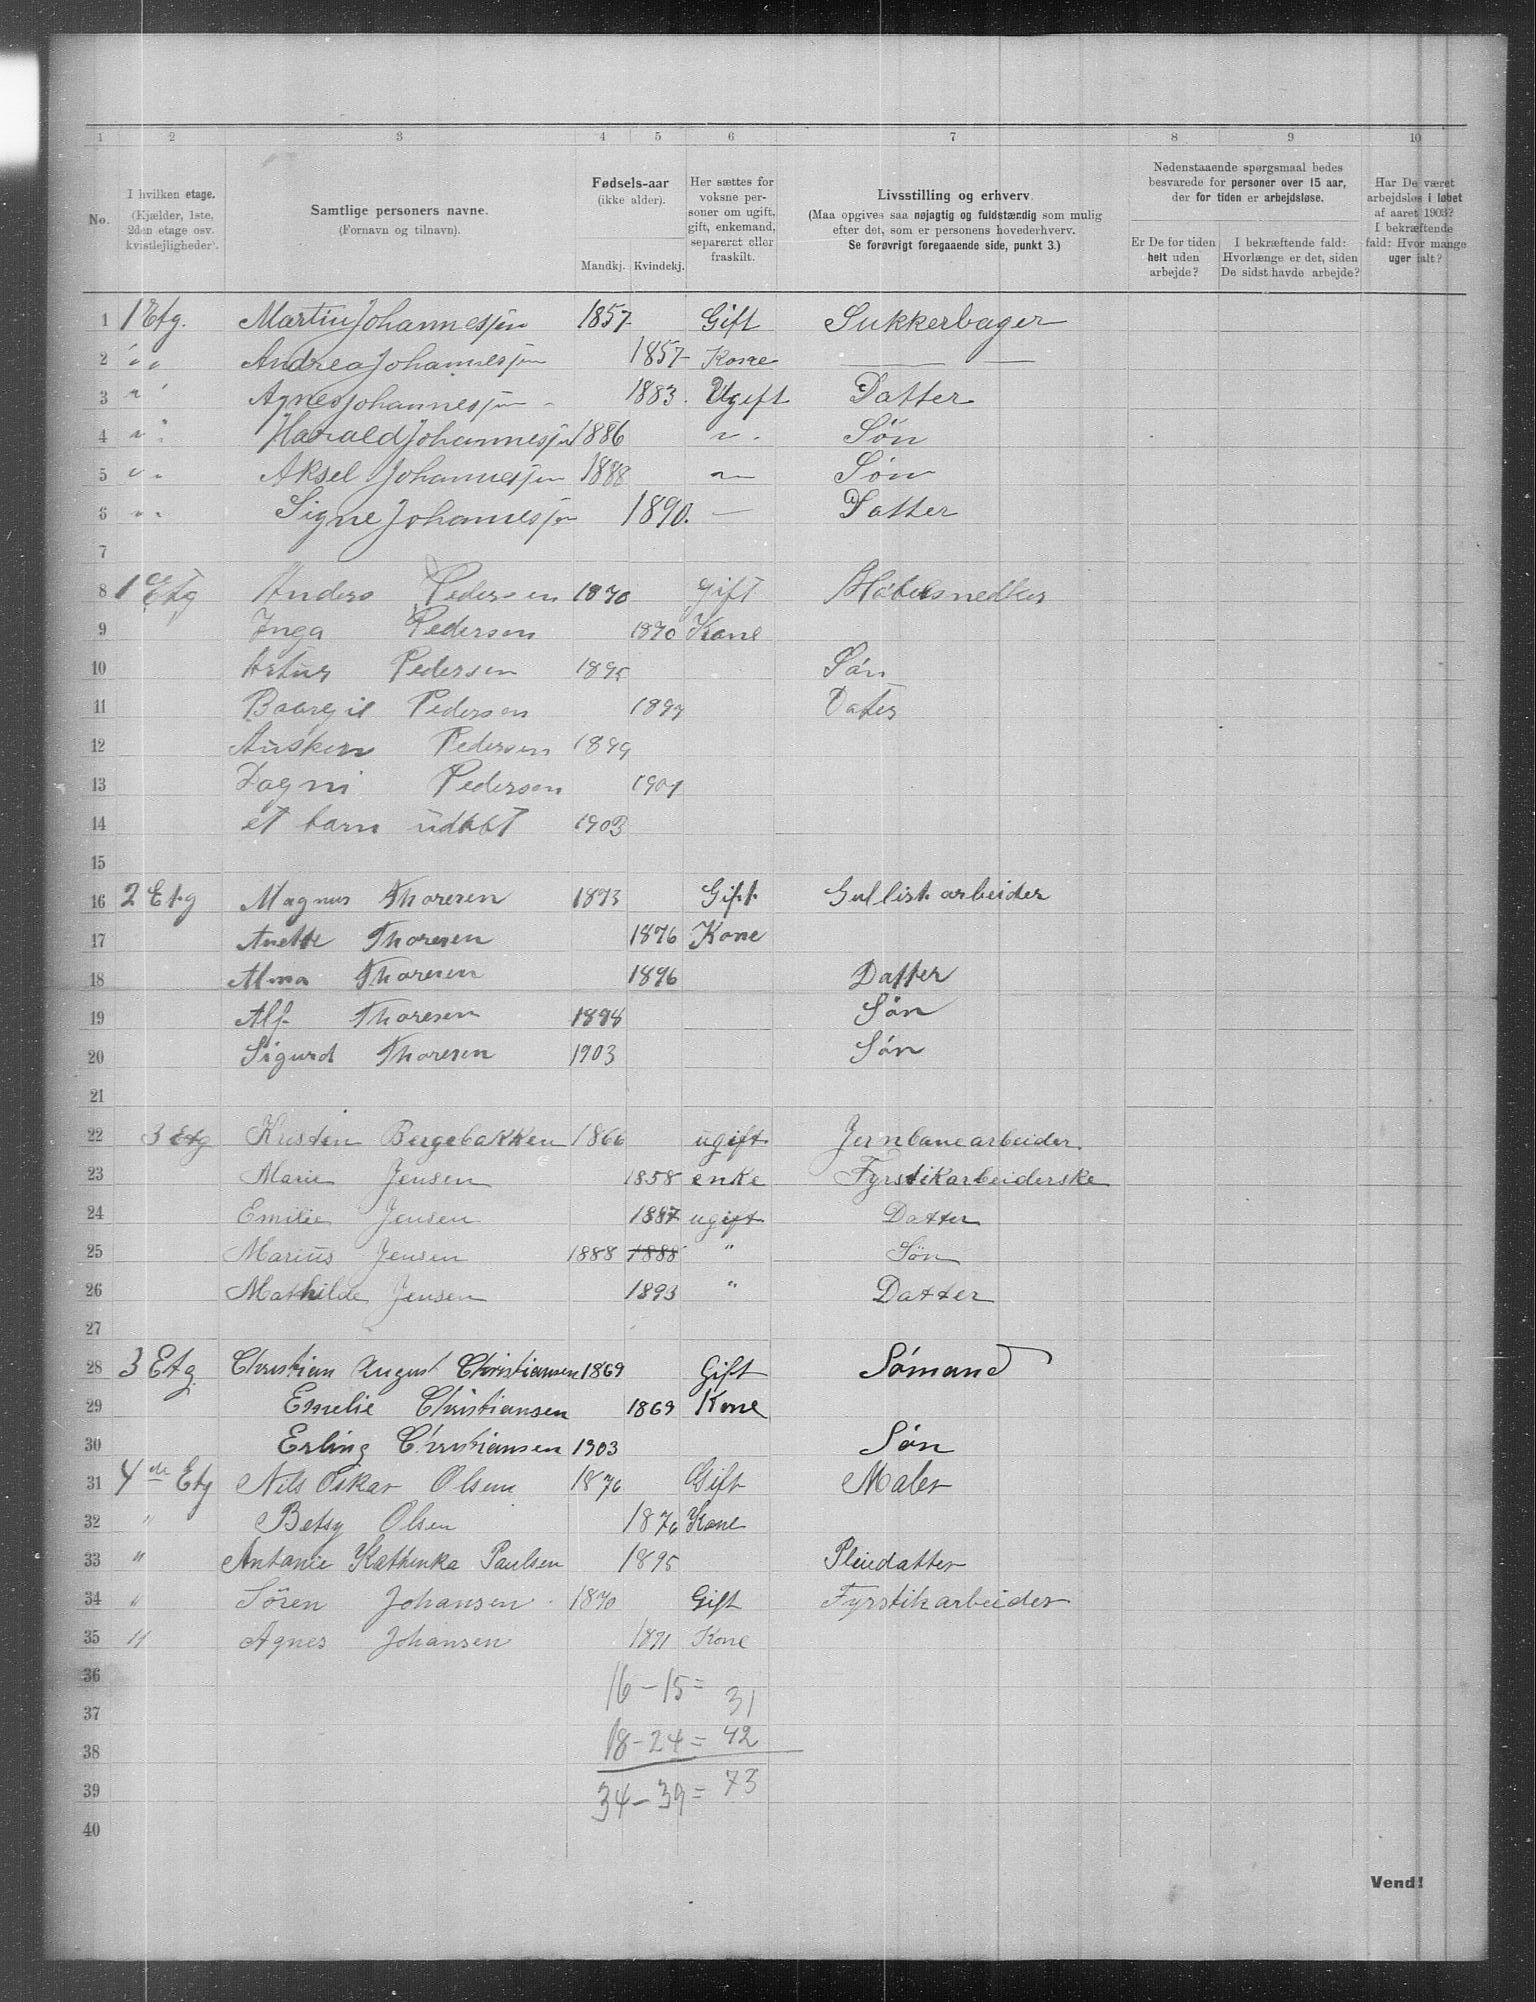 1 2 3 4 5 6 7 8 9 10
No.
I hvilken etage.
(Kjælder, 1ste,
2den etage osv.
kvistlejligheder).
Samtlige personers navne.
(Fornavn og tilnavn).
Fødsels-aar
(ikke alder).
Mandkj. Kvindekj.
Her sættes for
voksne per-
soner om ugift,
gift, enkemand,
separeret eller
fraskilt.
Livsstilling og erhverv.
(Maa opgives saa nøjagtig og fuldstændig som mulig
efter det, som er personens hovederhverv.
Se forøvrigt foregaaende side, punkt 3.)
Nedenstaaende spørgsmaal bedes
besvarede for personer over 15 aar,
der for tiden er arbejdsløse.
Er De for tiden
helt uden
arbejde?
I bekræftende fald:
Hvorlænge er det, siden
De sidst havde arbejde?
Har De været
arbejdsløs i løbet
af aaret 1903?
I bekræftende
fald: Hvor mange
uger ialt?
1 1 Etg. Martin Johannesjen 1857 Gift Sukkerbager
2 " " Andrea Johannesjen 1857 Kone —
3 " " Agnes Johannesjen 1883. Ugift Datter
4 " " Harald Johannesjen 1886 " Søn
5 " " Aksel Johannesjen 1888 " Søn
6 " " Signe Johannesjen 1890. — Datter
7
8 1 Etg Anders Pedersen 1870 gift Møbelsnedker
9 Inga Pedersen 1870 Kone
10 Artur Pedersen 1895 Søn
11 Pedersen 1897 Dater
12 Pedersen 1899
13 Dagni Pedersen 1901
14 et barn udøbt 1903
15
16 2 Etg Magnus Thoresen 1873 Gift. Gullist arbeider
17 Anette Thoresen 1876 Kone
18 Alma Thoresen 1896 Datter
19 Alf Thoresen 1898 Søn
20 Sigurd Thoresen 1903 Søn
21
22 3 Etg Kristen Bergebakken 1866 ugift Jernbanearbeider
23 Marie Jensen 1858 enke Fyrstikarbeiderske
24 Emilie Jensen 1887 ugift Datter
25 Marius Jensen 1888 1888 " Søn
26 Mathilde Jensen 1893 " Datter
27
28 3 Etg Christian August Christiansen 1869 Gift Sømand
29 Emelie Christiansen 1869 Kone
30 Erling Christiansen 1903 Søn
31 4de Etg Nils Oskar Olsen 1876 Gift Maler
32 " Betsy Olsen 1876 Kone
33 " Antonie Kathinka Paulsen 1895 Pleiedatter
34 " Sören Johansen 1870 Gift Fyrstikarbeider
35 " Agnes Johansen 1871 Kone
36 16 – 15 = 31
37
38 18 – 24 = 42
39 34 – 39 = 73
40
Vend!